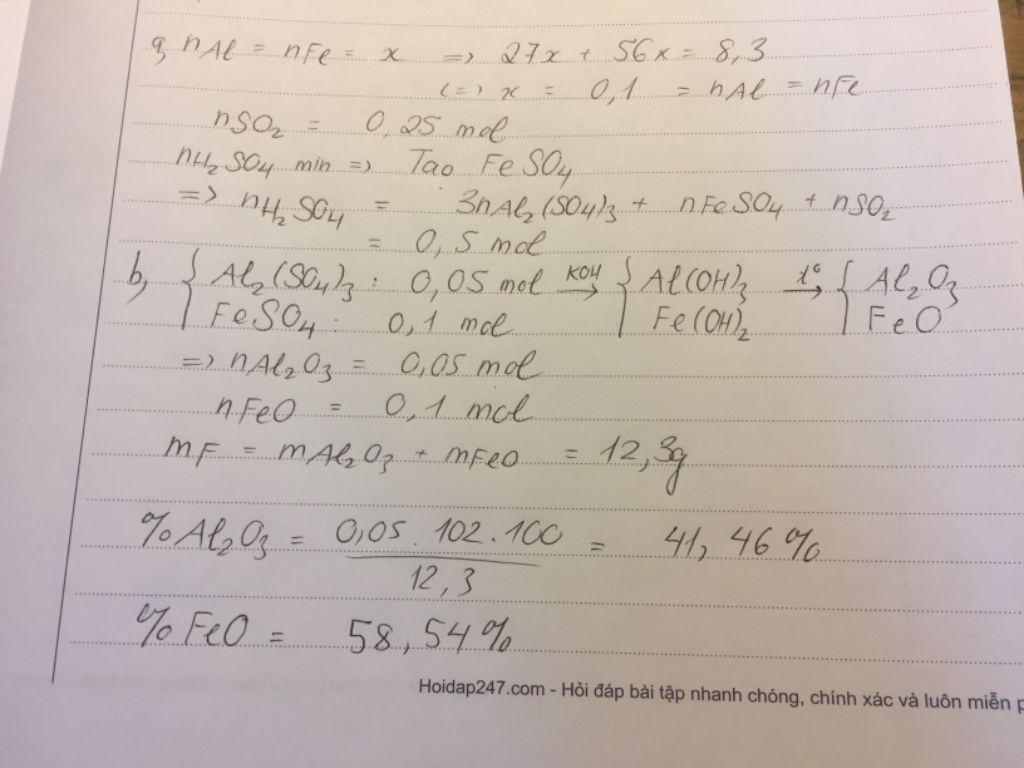 a, nAl = nFe = x => 27x + 56x = 8,3
<=> x = 0,1 = nAl = nFe
nSO₂ = 0,25 mol
nH₂SO₄ min => Tạo FeSO₄
=> nH₂SO₄ = 3nAl₂(SO₄)₃ + nFeSO₄ + nSO₂
= 0,5 mol
b, { Al₂(SO₄)₃ : 0,05 mol KOH→ { Al(OH)₃ t°→ { Al₂O₃
FeSO₄ : 0,1 mol Fe(OH)₂ FeO
=> nAl₂O₃ = 0,05 mol
nFeO = 0,1 mol
mF = mAl₂O₃ + mFeO = 12,3g
%Al₂O₃ = 0,05 . 102 . 100 = 41,46%
12,3
%FeO = 58,54%
Hoidap247.com - Hỏi đáp bài tập nhanh chóng, chính xác và luôn miễn p